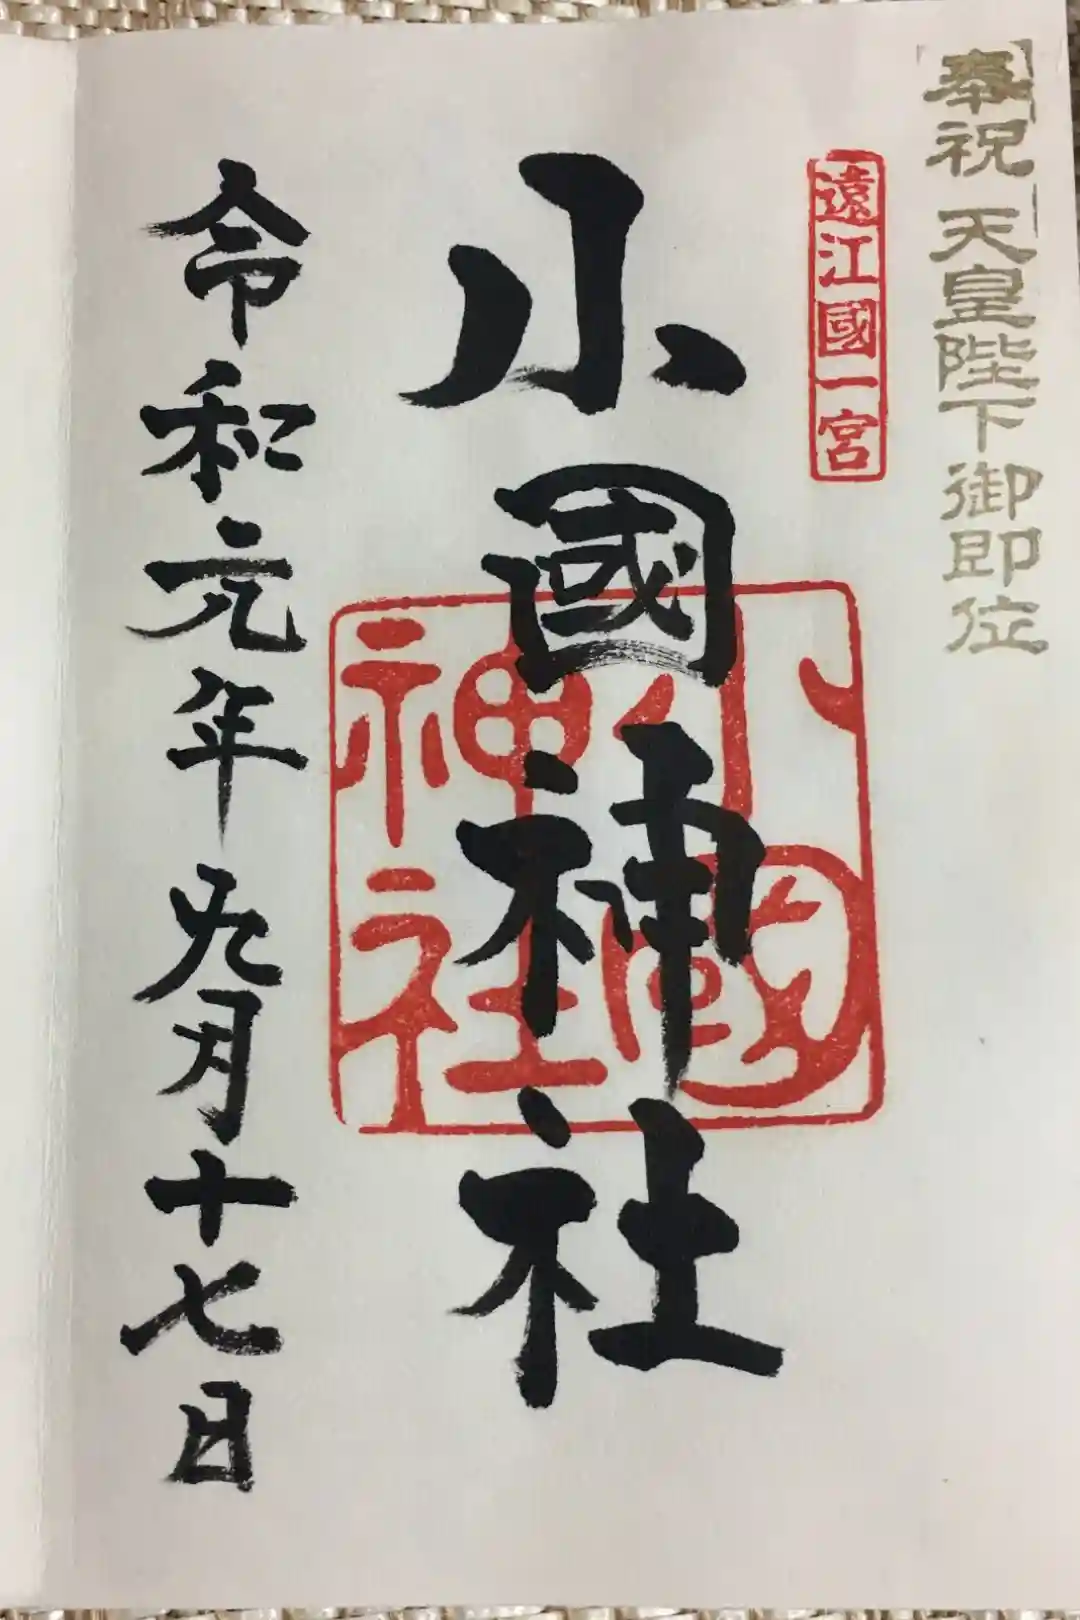 奉祝 天皇陛下御即位
遠江國一宮
小國神社
小國神社
令和元年九月十七日